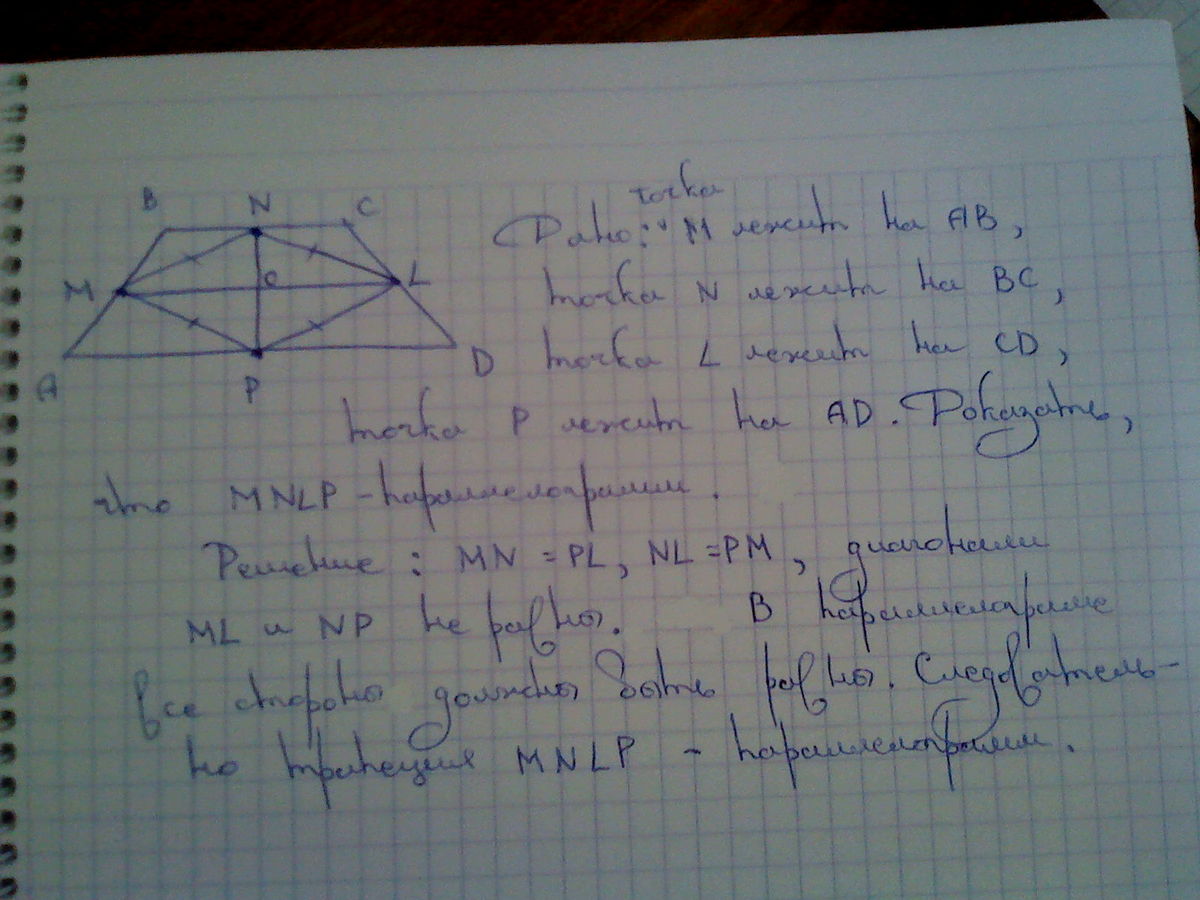 B N C
M e L
A P D
точка
Дано: M лежит на AB,
точка N лежит на BC,
точка L лежит на CD,
точка P лежит на AD. Доказать,
что MNLP - параллелограмм.
Решение: MN = PL, NL = PM, диагонали
ML и NP не равны. В параллелограме
все стороны должны быть равны. Следователь-
но трапеция MNLP - параллелограмм.